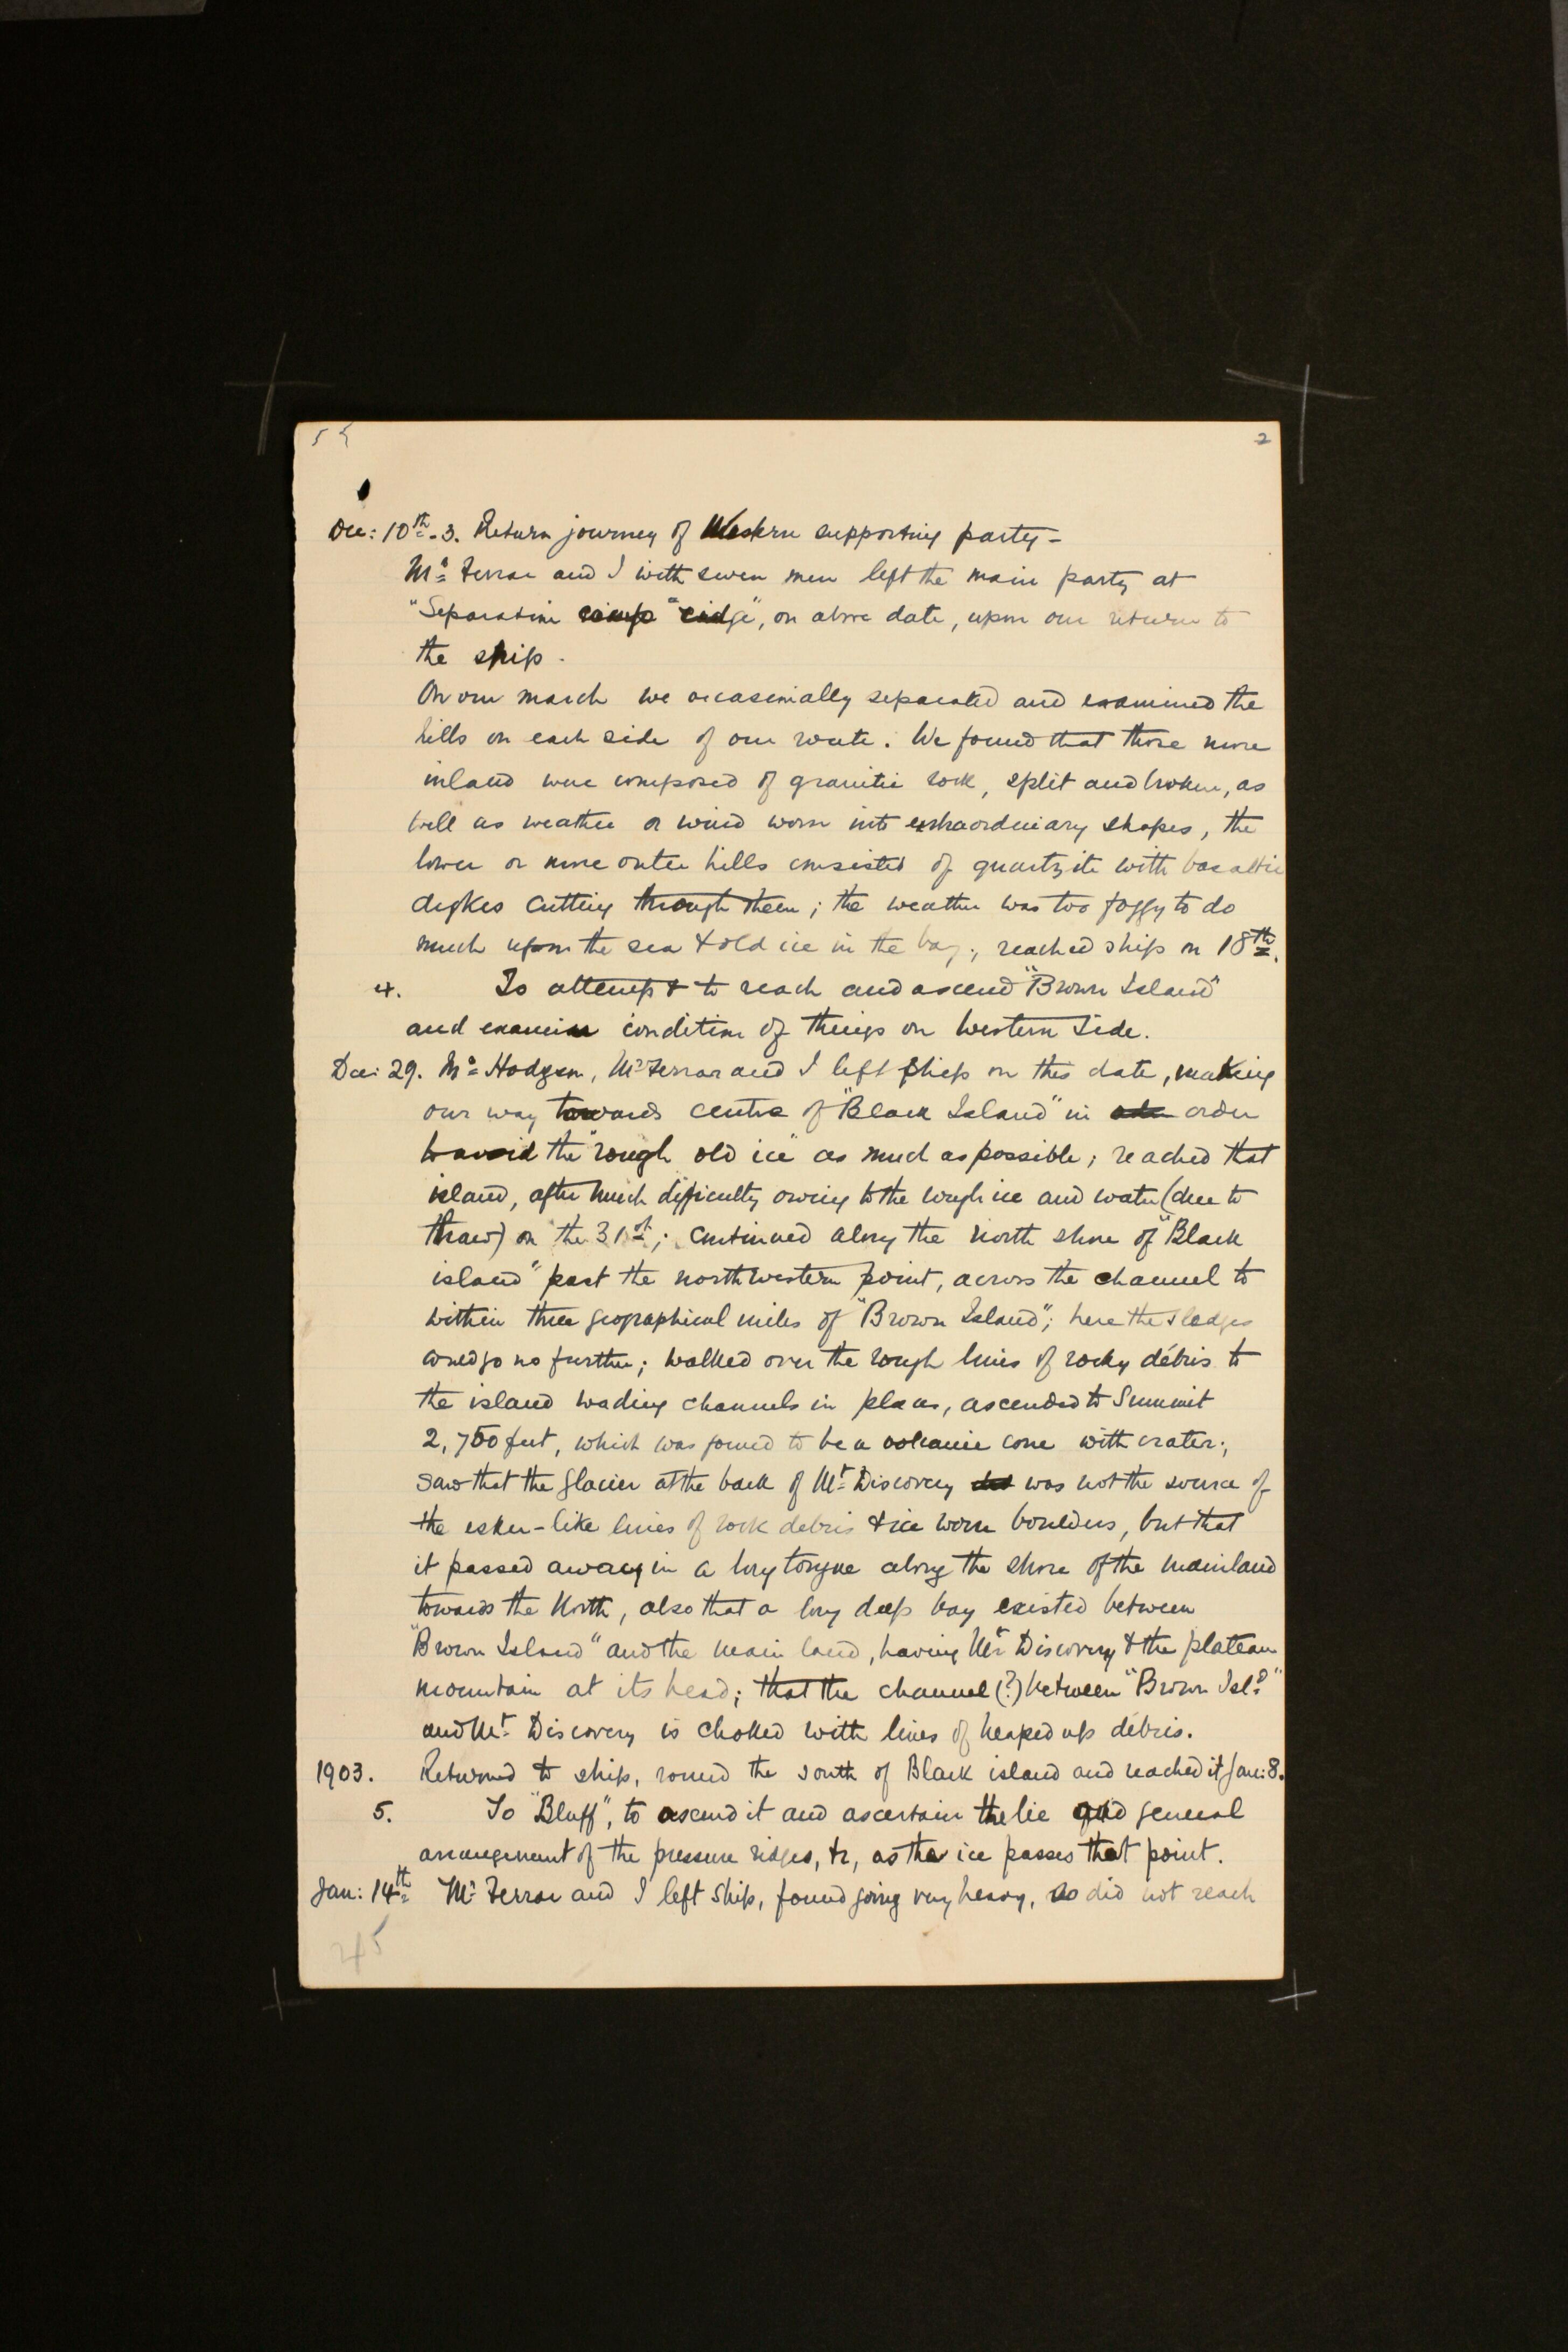 2
Dec: 10th. 3. Return journey of Western supporting party -
Mr Ferrar and I with seven men left the main party at
"Separation camp "ridge", on above date, upon our return to
the ship.
On our march we occasionally separated and examined the
hills on each side of our route. We found that those more
inland were composed of granitic rock, split and broken, as
well as weather or wind worn into extraordinary shapes, the
lower or more outer hills consisted of quartzite with basaltic
dykes cutting through them; the weather was too foggy to do
much upon the sea & old ice in the bay; reached ship on 18th.
4. To attempt to reach and ascend "Brown Island"
and examine condition of things on Western Side.
Dec: 29. Mr Hodgson, Mr Ferrar and I left ship on this date, making
our way towards centre of "Black Island" in order
to avoid the "rough old ice" as much as possible; reached that
island, after much difficulty owing to the rough ice and water (due to
thaw) on the 31st; continued along the north shore of "Black
island" past the northwestern point, across the channel to
within three geographical miles of "Brown Island"; here the sledges
could go no further; walked over the rough lines of rocky débris to
the island wading channels in places, ascended to Summit
2,750 feet, which was found to be a volcanic cone with crater;
saw that the glacier at the back of Mt Discovery was not the source of
the esker-like lines of rock debris & ice worn boulders, but that
it passed away in a long tongue along the shore of the mainland
towards the North, also that a long deep bay existed between
"Brown Island" and the main land, having Mt Discovery & the plateau
mountain at its head; that the channel (?) between "Brown Isld"
and Mt Discovery is choked with lines of heaped up débris.
1903. Returned to ship, round the south of Black island and reached it Jan: 8.
5. To "Bluff", to ascend it and ascertain the lie and general
arrangement of the pressure ridges, &c, as the ice passes that point.
Jan: 14th Mr Ferrar and I left Ship, found going very heavy, so did not reach
45